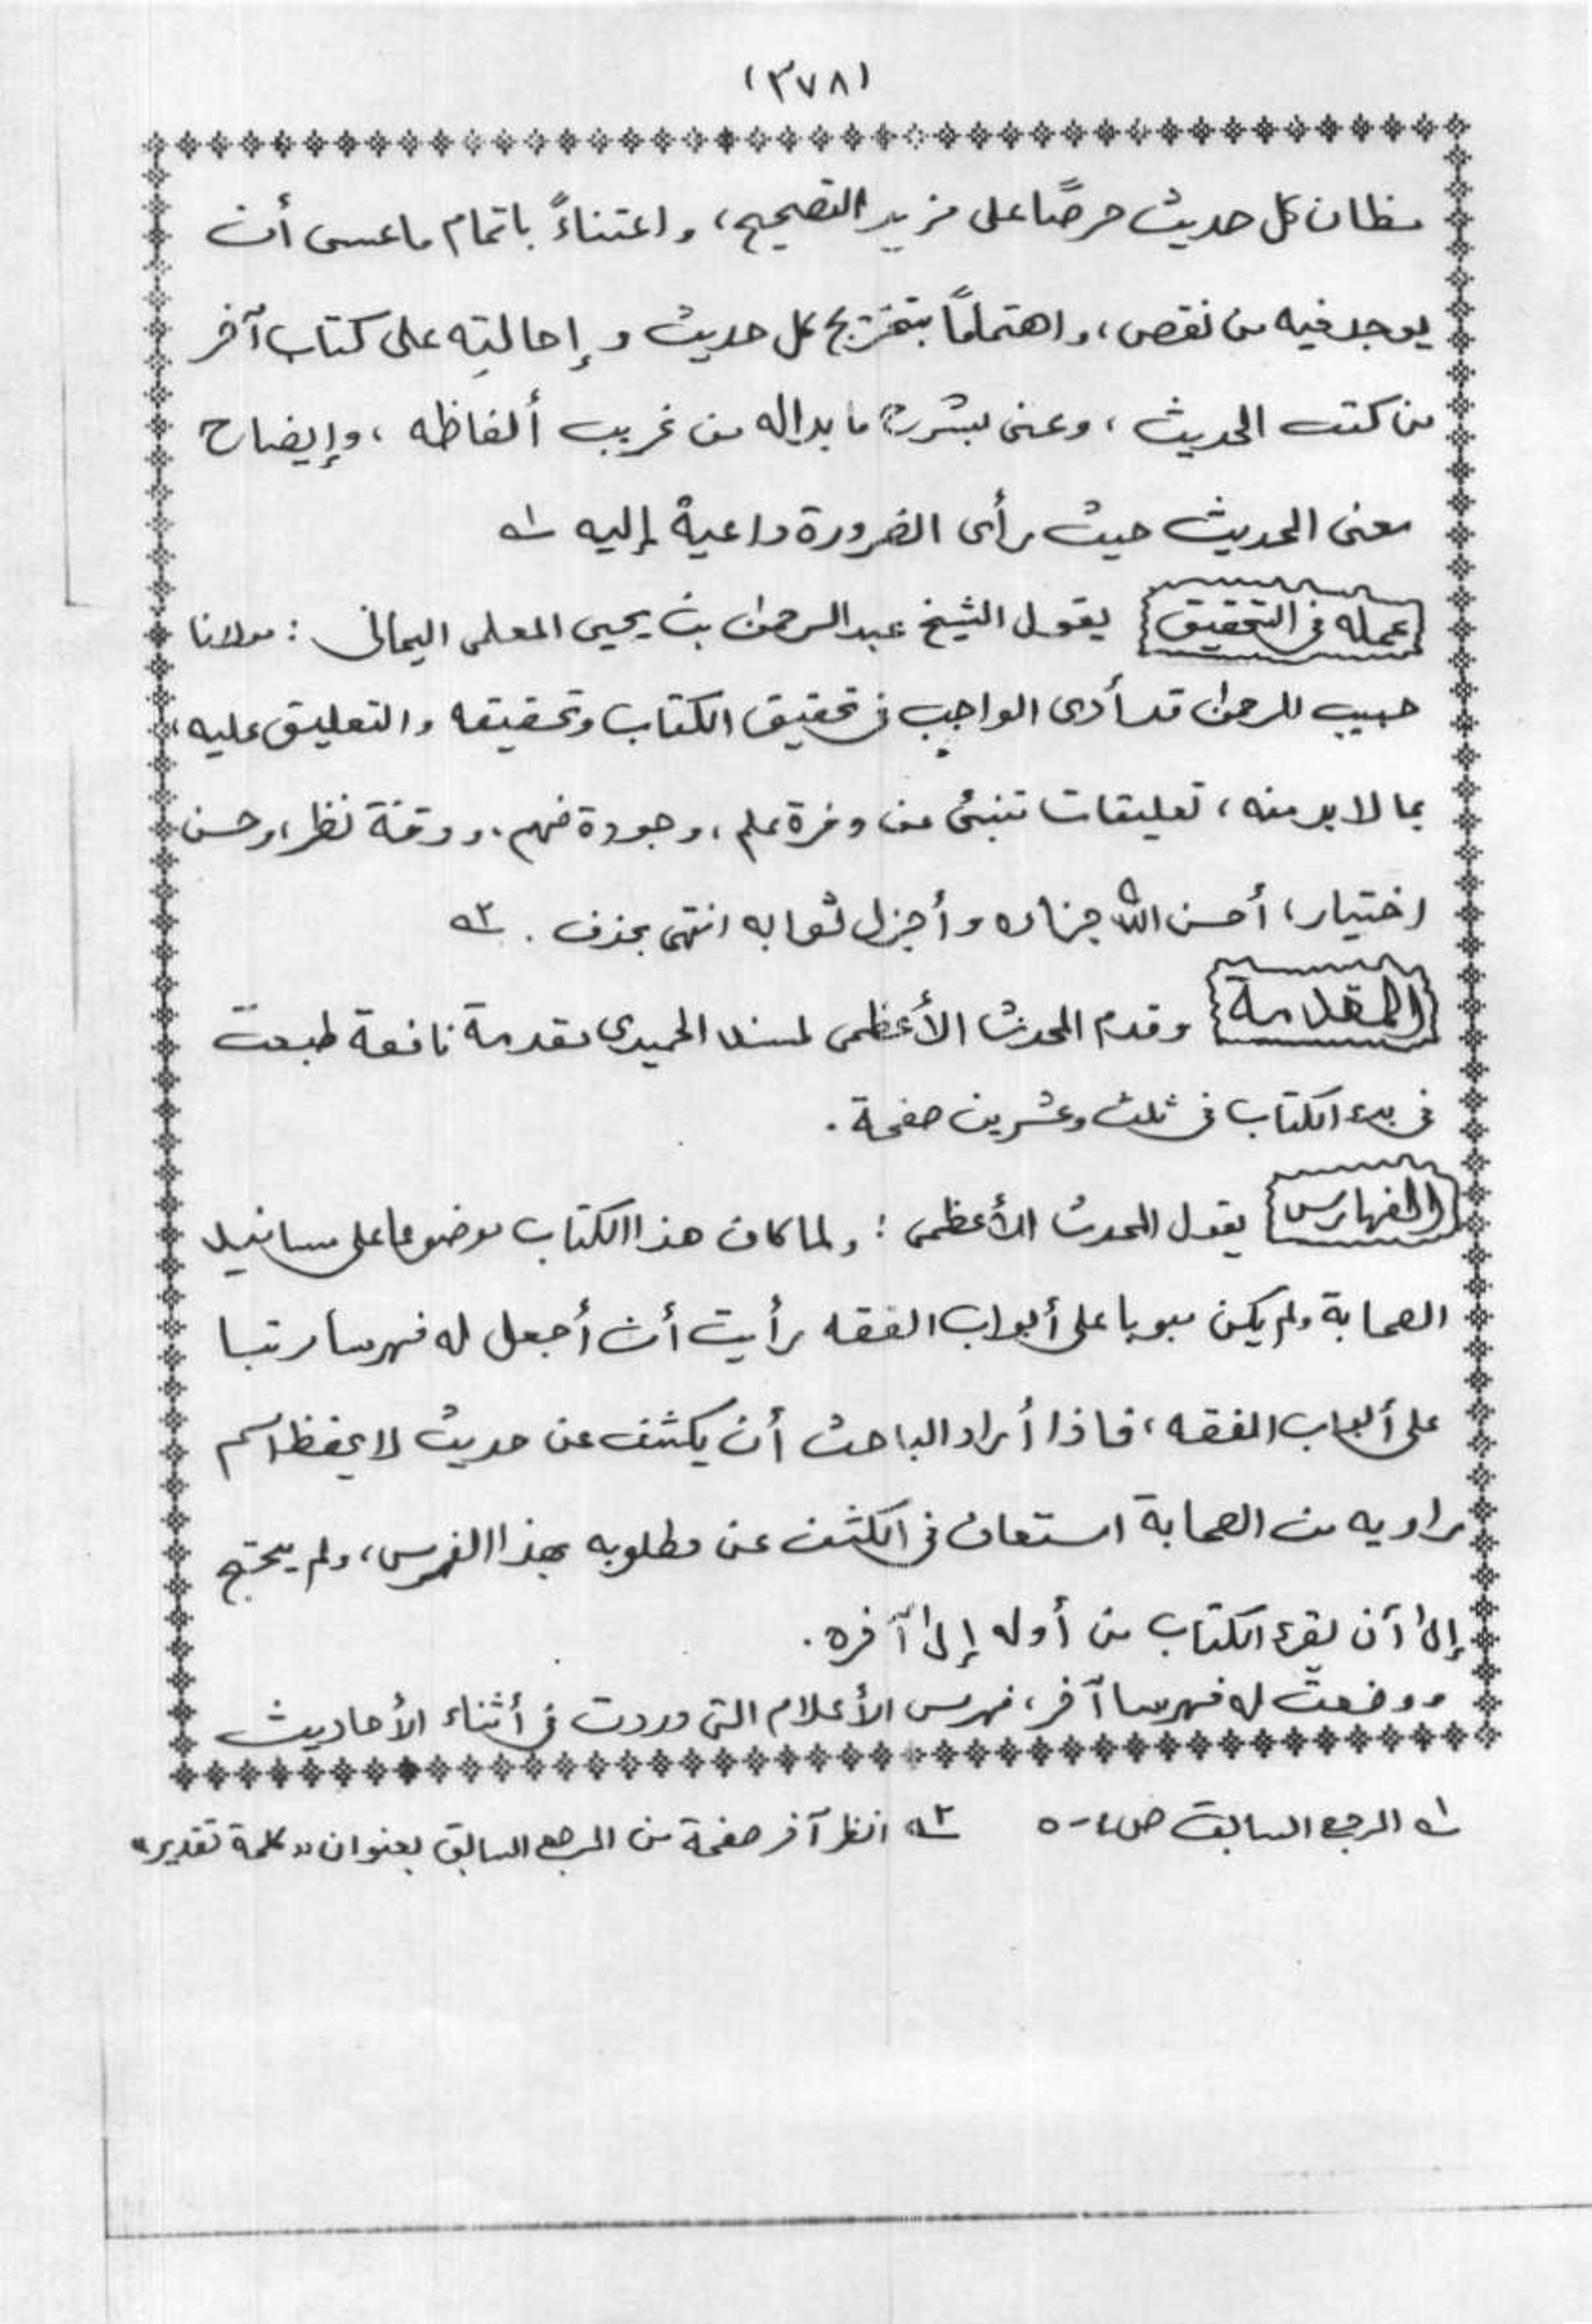 (٣٧٨)
مظان كل حديث حرصًا على مزيد التصحيح، واعتناءً باتمام ما عسى أن
يوجد فيه من نقص، واهتمامًا بتخريج كل حديث وإحالتِه على كتاب آخر
من كتب الحديث، وعنى بشرح ما بدا له من غريب ألفاظه، وإيضاح
معنى الحديث حيث رأى الضرورة داعية إليه ١ه
عمله في التحقيق يقول الشيخ عبدالرحمن بن يحيى المعلمى اليمانى : مولانا
حبيب الرحمن قد أدى الواجب في تحقيق الكتاب وتحقيقه والتعليق عليه،
بما لا بد منه، تعليقات تنبئ عن وفرة علم، وجودة فهم، ودقة نظر، وحسن
اختيار، أحسن الله جزاءه وأجزل ثوابه انتهى بحذف. ٢ه
المقدمة وقدم المحدث الأعظمى لمسند الحميدى مقدمة نافعة طبعت
فى بدء الكتاب فى ثلث وعشرين صفحة.
الفهارس يقول المحدث الأعظمى : ولما كان هذا الكتاب موضوعا على مسانيد
الصحابة ولم يكن مبوبا على أبواب الفقه رأيت أن أجعل له فهرسا مرتبا
على أبواب الفقه، فاذا أراد الباحث أن يكشف عن حديث لا يحفظ اسم
راويه من الصحابة استعان فى الكشف عن مطلوبه بهذا الفهرس، ولم يحتج
إلى أن يقرء الكتاب من أوله إلى آخره.
ووضعت له فهرسا آخر، فهرس الأعلام التى وردت فى أثناء الأحاديث
١ه المرجع السابق ص ٤-٥ ٢ه انظر آخر صفحة من المرجع السابق بعنوان "كلمة تقدير"